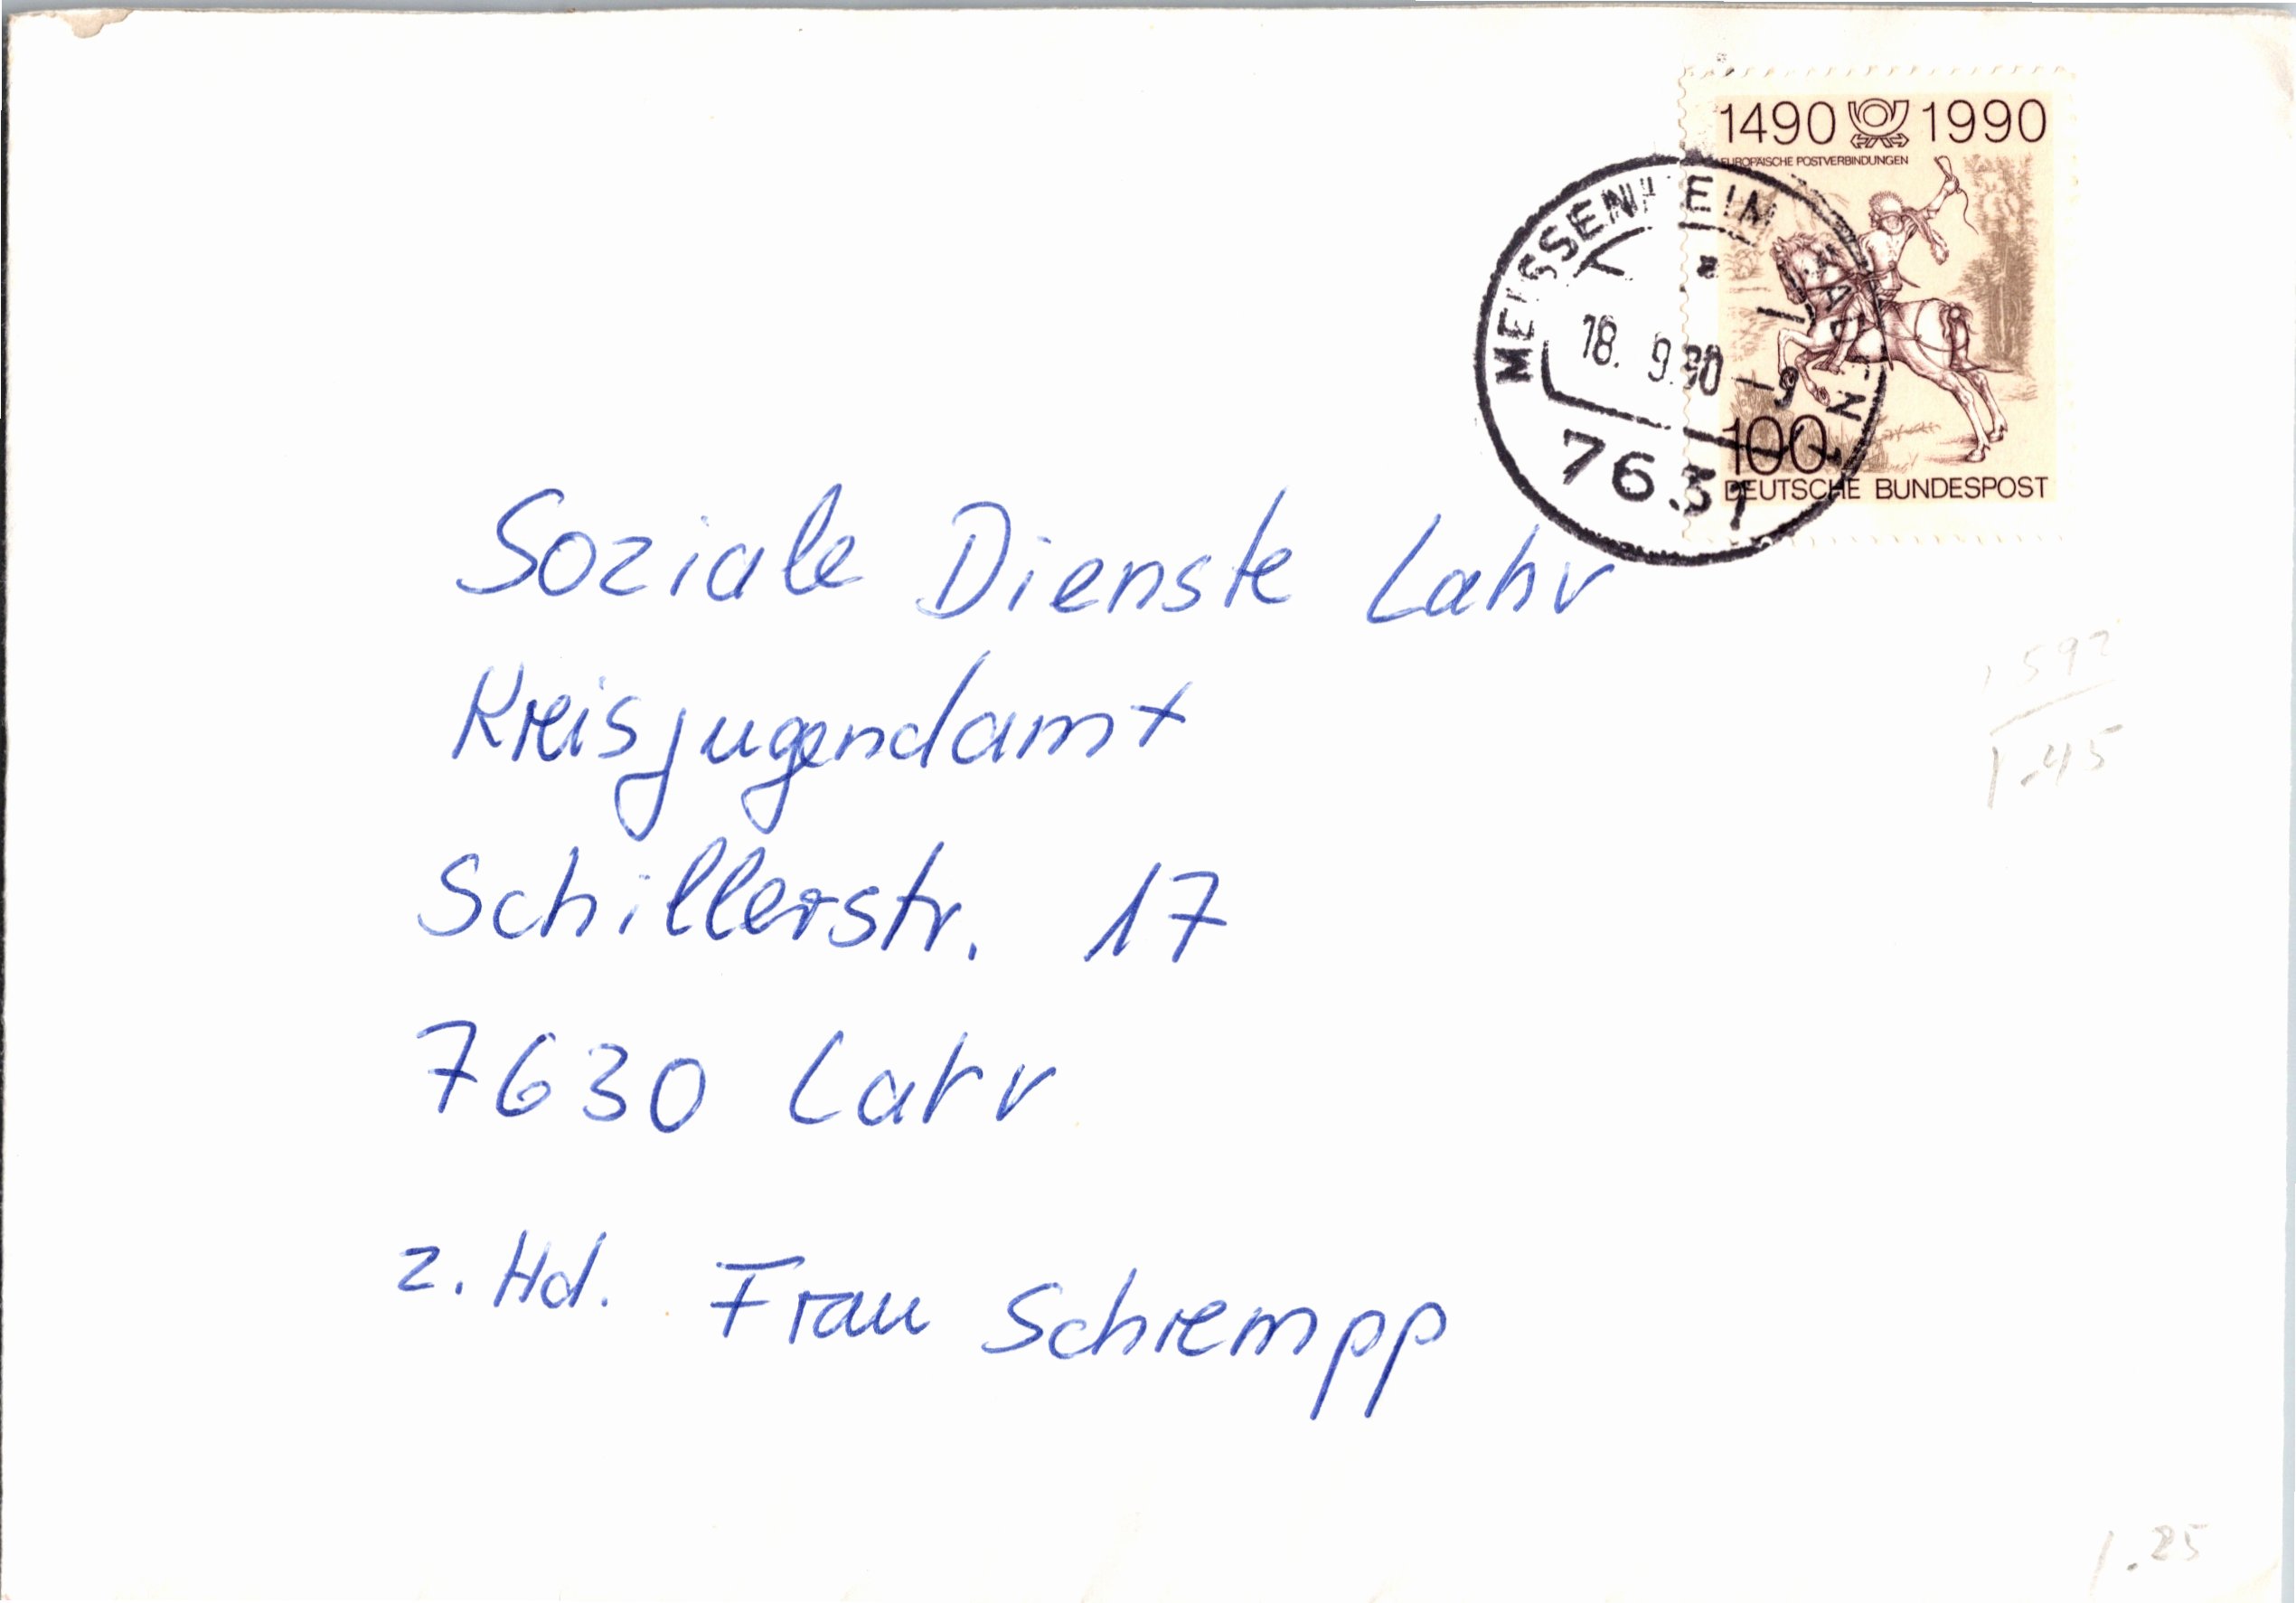 1490 1990
EUROPÄISCHE POSTVERBINDUNGEN
MEISSENHEIM BADEN
a
18. 9.90 -9
7631
100
DEUTSCHE BUNDESPOST
Soziale Dienste Lahr
Kreisjugendamt
Schillerstr. 17
7630 Lahr
z. Hd. Frau Schrempp
1.45
1.25